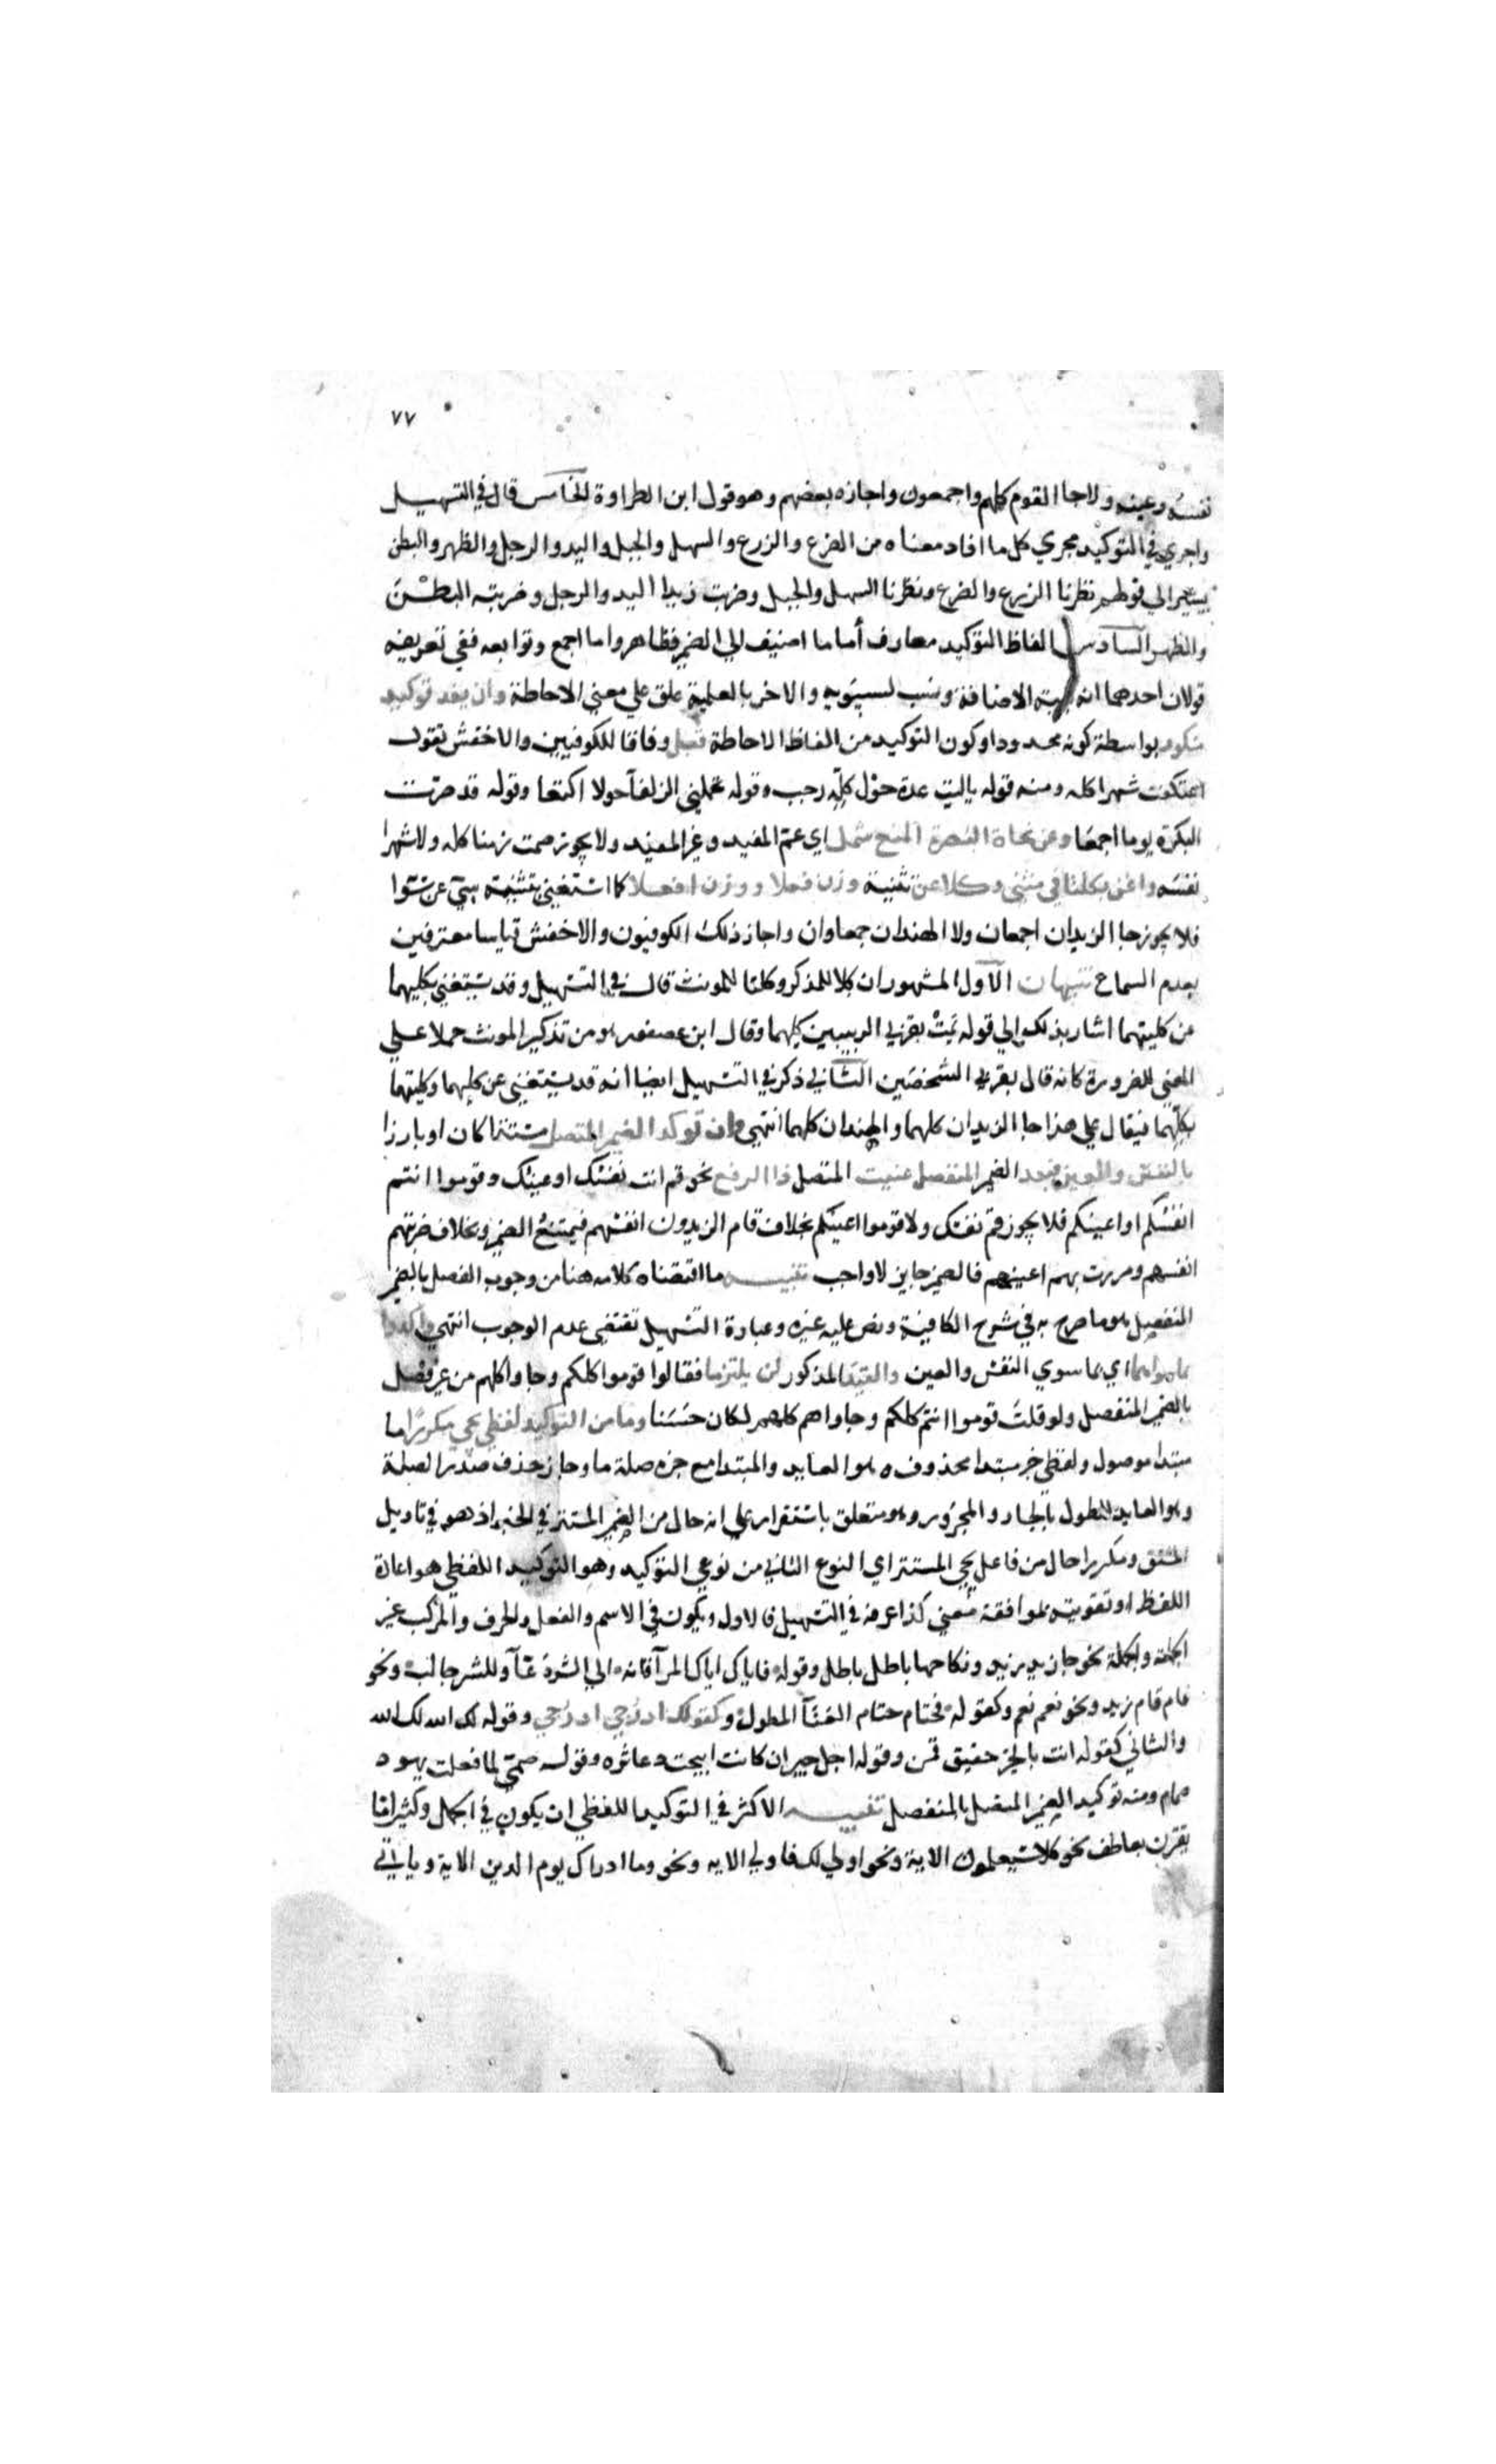 ٧٧
نفسه وعينه ولا جا القوم كلهم واجمعون واجازه بعضهم وهو قول ابن الطراوة الخامس قال في التسهيل
واجري في التوكيد مجري كل ما افاد معناه من الضرع والزرع والسهل والجبل واليد والرجل والظهر والبطن
يشير الي قولهم مطرنا الزرع والضرع ومطرنا السهل والجبل وضربت زيدا اليد والرجل وضربته البطن
والظهر السادس الفاظ التوكيد معارف أما ما اضيف الي الضمير فظاهر واما اجمع وتوابعه ففي تعريفه
قولان احدهما انه بنية الاضافة ونسب لسيبويه والاخر بالعلمية علق علي معني الاحاطة وان يفد توكيد
منكور بواسطة كونه محدودا وكون التوكيد من الفاظ الاحاطة قبل وفاقا للكوفيين والاخفش تقول
اعتكفت شهرا كله ومنه قوله ياليت عدة حول كله رجب وقوله تحملني الزلفآ حولا اكتعا وقوله قد صرت
البكرة يوما اجمعا وعن نحاة البصرة المنع شمل اي عم المفيد وغير المفيد ولا يجوز صمت زمنا كله ولا شهرا
نفسه واغن بكلتا في مثني وكلا عن تثنية وزن فعلا ووزن افعلا كما استغني بتثنية سيّ عن سوا
فلا يجوز جا الزيدان اجمعان ولا الهندان جمعاوان واجاز ذلك الكوفيون والاخفش قياسا معترفين
بعدم السماع تنبيهات الآول المشهور ان كلا للمذكر وكلتا للمونث قال في التسهيل وقد يستغني بكليهما
عن كليتهما اشار بذلك الي قوله يمت بقربي الزينبين كليهما وقال ابن عصفور هو من تذكير المونث حملا علي
المعني للضرورة كانه قال بقربي الشخصين الثاني ذكر في التسهيل ايضا انه قد يستغني عن كليهما وكليتهما
بكلهما فيقال علي هذا جا الزيدان كلهما والهندان كلهما انتهي وان توكد الضمير المتصل مستترا كان او بارزا
بالنفس والعين فبعد الضمير المنفصل عنيت المتصل ذا الرفع نحو قم انت نفسك او عينك وقوموا انتم
انفسكم او اعينكم فلا يجوز قم نفسك ولا قوموا اعينكم بخلاف قام الزيدون انفسهم فيمتنع الضمير وبخلاف ضربتهم
انفسهم ومررت بهم اعينهم فالضمير جايز لا واجب تنبيه ما اقتضاه كلامه هنا من وجوب الفصل بالضمير
المنفصل هو ما صرح به في شرح الكافية ونص عليه غيره وعبارة التسهيل تقتضي عدم الوجوب انتهي واكدوا
بما سواهما اي بما سوي النفس والعين والقيد المذكور لن يلتزما فقالوا قوموا كلكم وجاواكلهم من غير فصل
بالضمير المنفصل ولو قلت قوموا انتم كلكم وجاوا هم كلهم لكان حسنا وما من التوكيد لفظي يجي مكررا ما
مبتدا موصول ولفظي خبر مبتدا محذوف ه هو العايد والمبتدا مع خبره صلة ما وجاز حذف صدر الصلة
وهو العايد للطول بالجار والمجرور وهو متعلق باستقرار علي انه حال من الضمير المستتر في الخبر اذ هو في تاويل
المشتق ومكررا حال من فاعل يجي المستتر اي النوع الثاني من نوعي التوكيد وهو التوكيد اللفظي هو اعادة
اللفظ او تقويته بموافقه معني كذا عرفه في التسهيل فالاول ويكون في الاسم والفعل والحرف والمركب غير
الجملة والجملة نحو جا زيد زيد ونكاحها باطل باطل وقوله فاياك اياك المرآ فانه الي الشر دعآ وللشر جالب ونحو
قام قام زيد ونحو نعم نعم وكقوله فحتام حتام العنآ المطول وكقولك ادرجي ادرجي وقوله لك الله لك الله
والثاني كقوله انت بالخير حقيق قمن وقوله اجل جير ان كانت ابيحت دعاثره وقوله صمي لما فعلت يهود
صمام ومنه توكيد الضمير المتصل بالمنفصل تنبيه الاكثر في التوكيد اللفظي ان يكون في الجمل وكثيرا ما
يقترن بعاطف نحو كلا سيعلمون الاية ونحو اولي لك فاولي الايه ونحو وما ادراك يوم الدين الاية وياتي